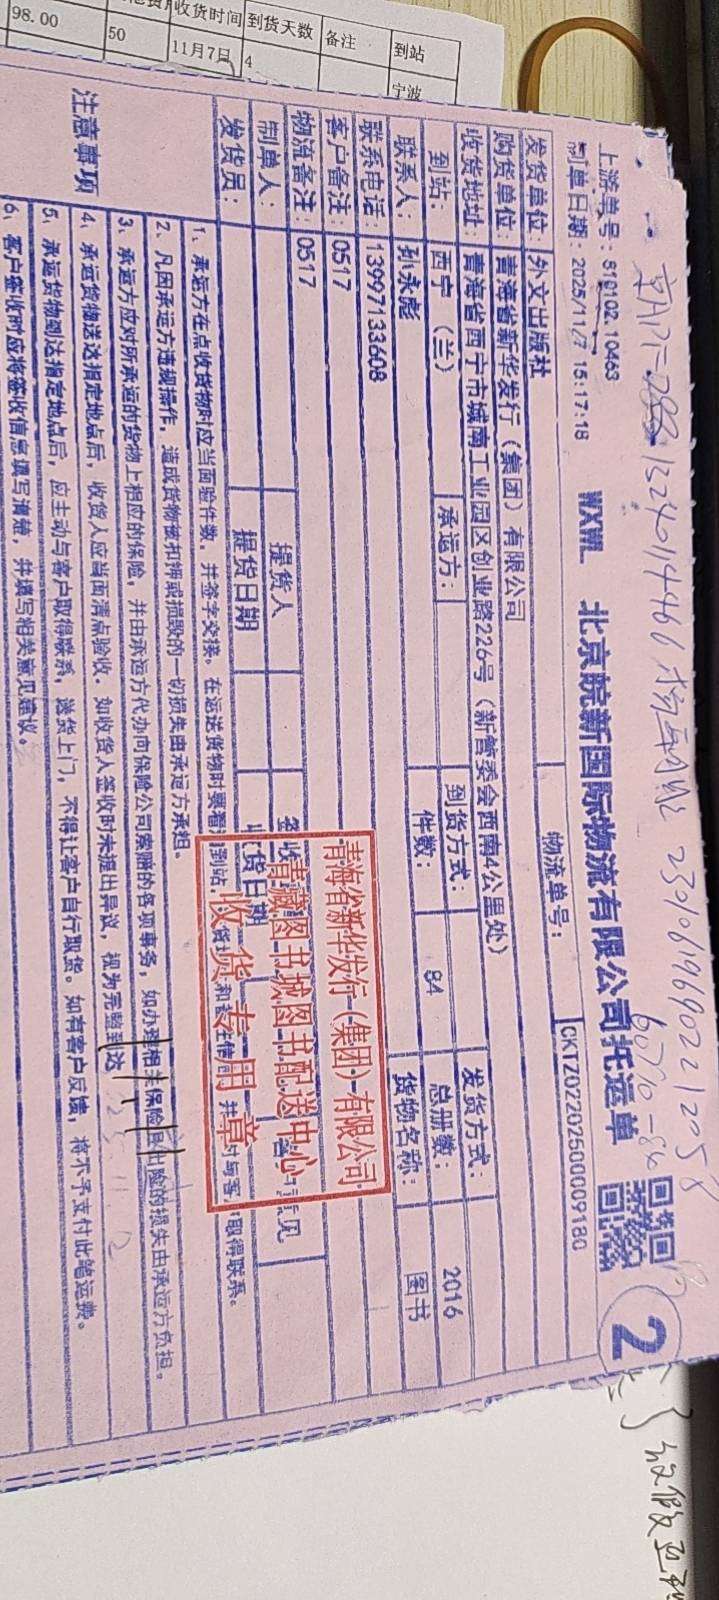 98.00
50
收货时间
11月7日
到货天数
4
备注
到站
宁波
上游单号：810102.10463
制单日期：2025/11/7 15:17:18
WXWL 北京皖新国际物流有限公司托运单
2
物流单号：
CKTZ02202500009180
发货单位：外文出版社
购货单位：青海省新华发行（集团）有限公司
收货地址：青海省西宁市城南工业园区创业路226号（新管委会西南4公里处）
到站：西宁（兰） 承运方： 到货方式： 发货方式：
联系人：孙永彪 件数：84 总册数：2016
联系电话：13997133608 货物名称：图书
客户备注：0517
物流备注：0517
制单人： 提货人
发货员： 提货日期
青海省新华发行（集团）有限公司
青藏图书城图书配送中心
收货专用章
注意事项
1、承运方在点收货物时应当面验件数，并签字交接。在运送货物时要看
取得联系。
2、凡因承运方违规操作，造成货物被扣押或损毁的一切损失由承运方承担。
3、承运方应对所承运的货物上相应的保险，并由承运方代办向保险公司索赔的各项事务，如办理相关保险且出险的损失由承运方负担。
4、承运货物送达指定地点后，收货人应当面清点验收，如收货人签收时未提出异议，视为完整到达
5、承运货物到达指定地点后，应主动与客户取得联系，送货上门，不得让客户自行取货。如有客户反馈，将不予支付此笔运费。
6、客户签收时应将签收信息填写清楚，并填写相关意见建议。